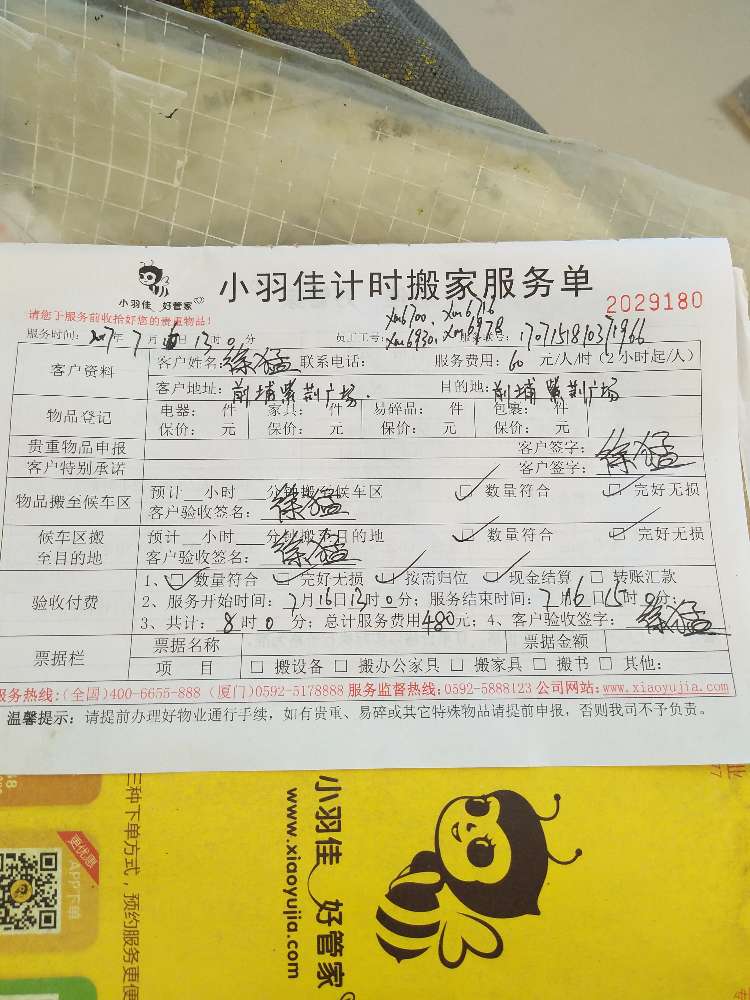 小羽佳 好管家
小羽佳计时搬家服务单
2029180
请您于服务前收拾好您的贵重物品!
xm6700. xm6716
服务时间: 2017年 7 月 16 日 13时 0 分 员工工号: xm6930. xm6978
170715181037 1966
客户资料 客户姓名: 徐猛 联系电话: 服务费用: 60 元/人/时 (2 小时起/人)
客户地址: 前埔紫荆广场. 目的地: 前埔紫荆广场
物品登记 电器: 件 家具: 件 易碎品: 件 包裹: 件
保价: 元 保价: 元 保价: 元 保价: 元
贵重物品申报 客户签字:
客户特别承诺 客户签字: 徐猛
物品搬至候车区 预计__小时__分钟搬至候车区 ☑ 数量符合 ☑ 完好无损
客户验收签名: 徐猛
候车区搬至目的地 预计__小时__分钟搬至目的地 ☑ 数量符合 ☑ 完好无损
客户验收签名: 徐猛
验收付费 1、☑ 数量符合 ☑ 完好无损 ☑ 按需归位 ☑ 现金结算 □ 转账汇款
2、服务开始时间: 7月16日13时0分; 服务结束时间: 7月16日15时0分;
3、共计: 8时0分; 总计服务费用480元; 4、客户验收签字: 徐猛
票据栏 票据名称 票据金额
项 目 □ 搬设备 □ 搬办公家具 □ 搬家具 □ 搬书 □ 其他:
服务热线: (全国)400-6655-888 (厦门)0592-5178888 服务监督热线: 0592-5888123 公司网站: www.xiaoyujia.com
温馨提示: 请提前办理好物业通行手续, 如有贵重、易碎或其它特殊物品请提前申报, 否则我司不予负责。
小羽佳 好管家
www.xiaoyujia.com
三种下单方式, 预约服务更便
更优惠
APP下单